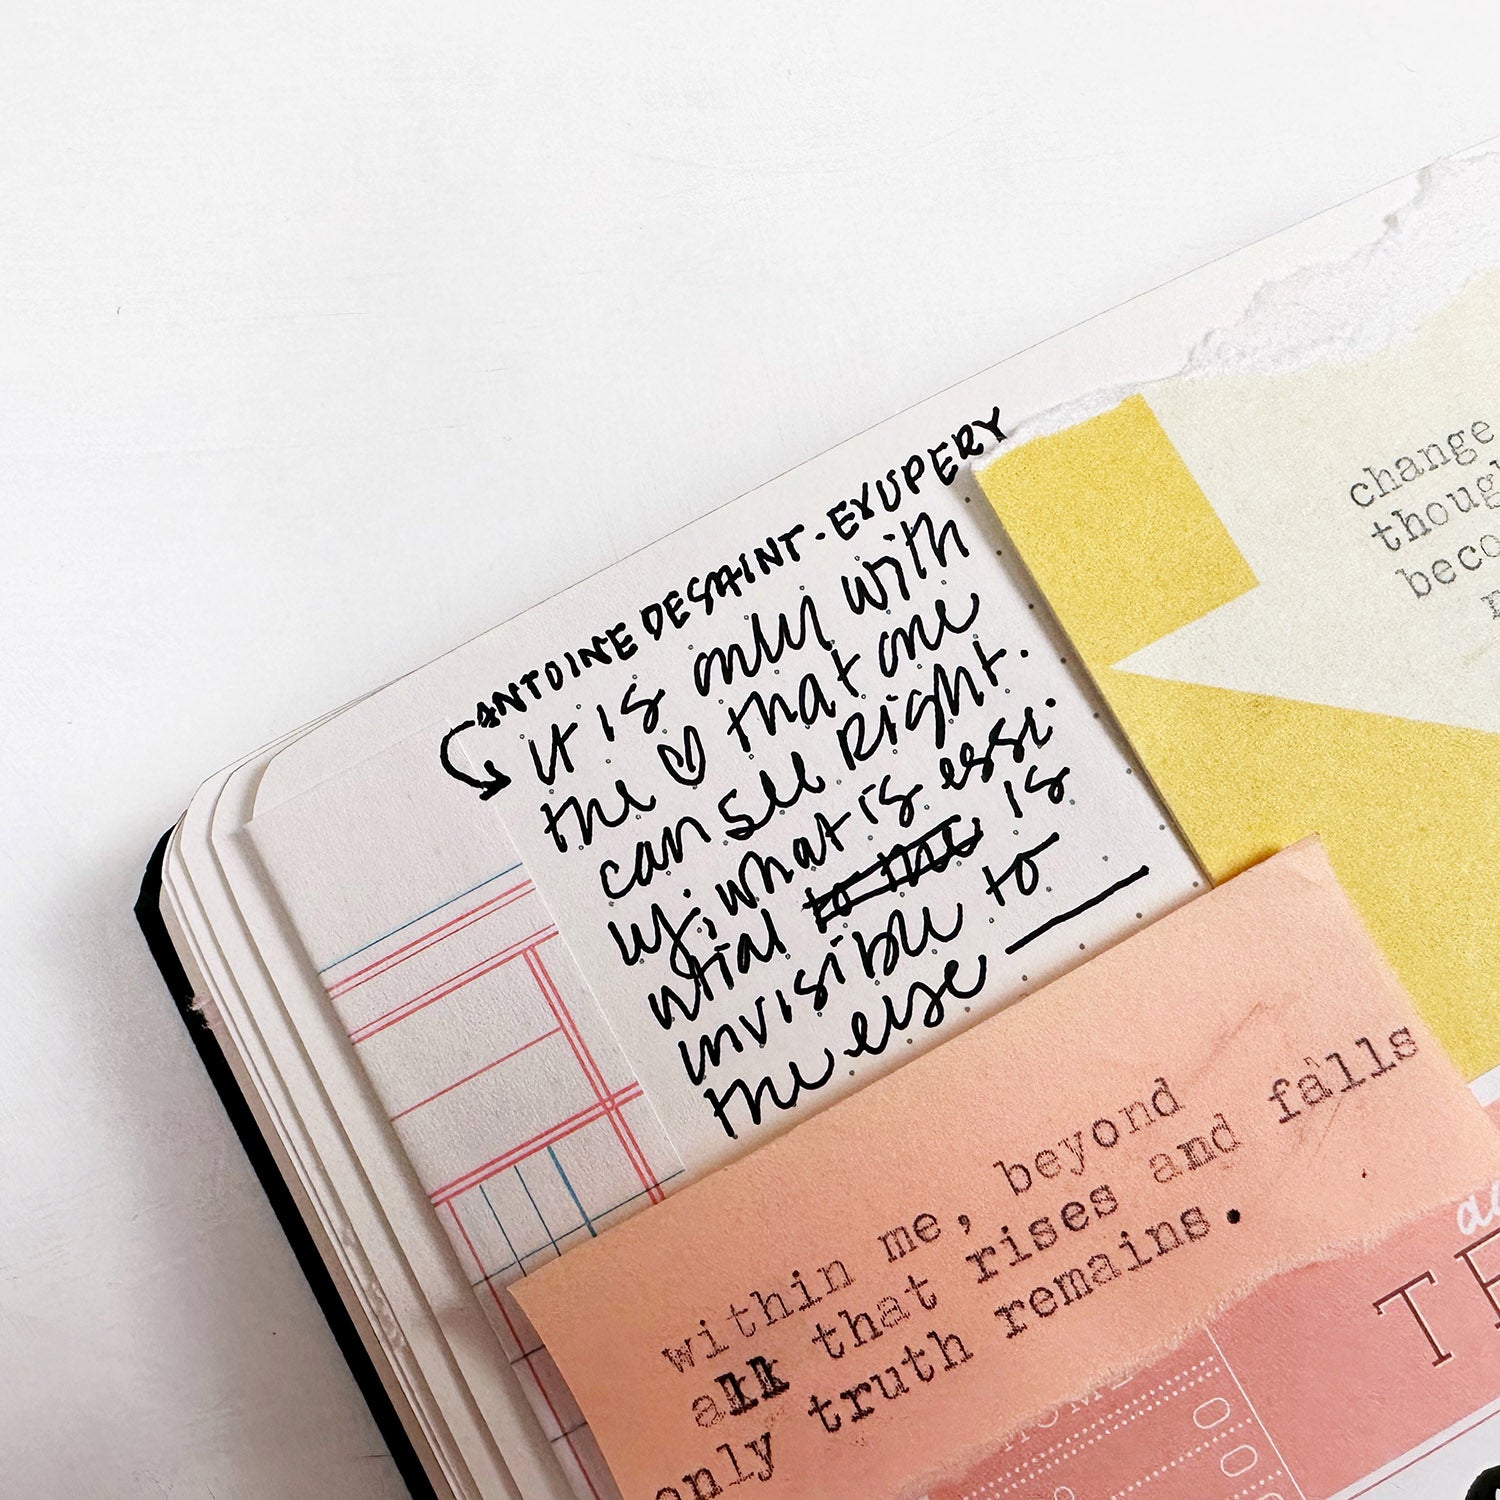 ANTOINE DE SAINT-EXUPERY
it is only with
the ♡ that one
can see right.
ly; what is esse.
ntial to me is
invisible to
the eyse
change
though
beco
within me, beyond
all that rises and falls
only truth remains.
TE